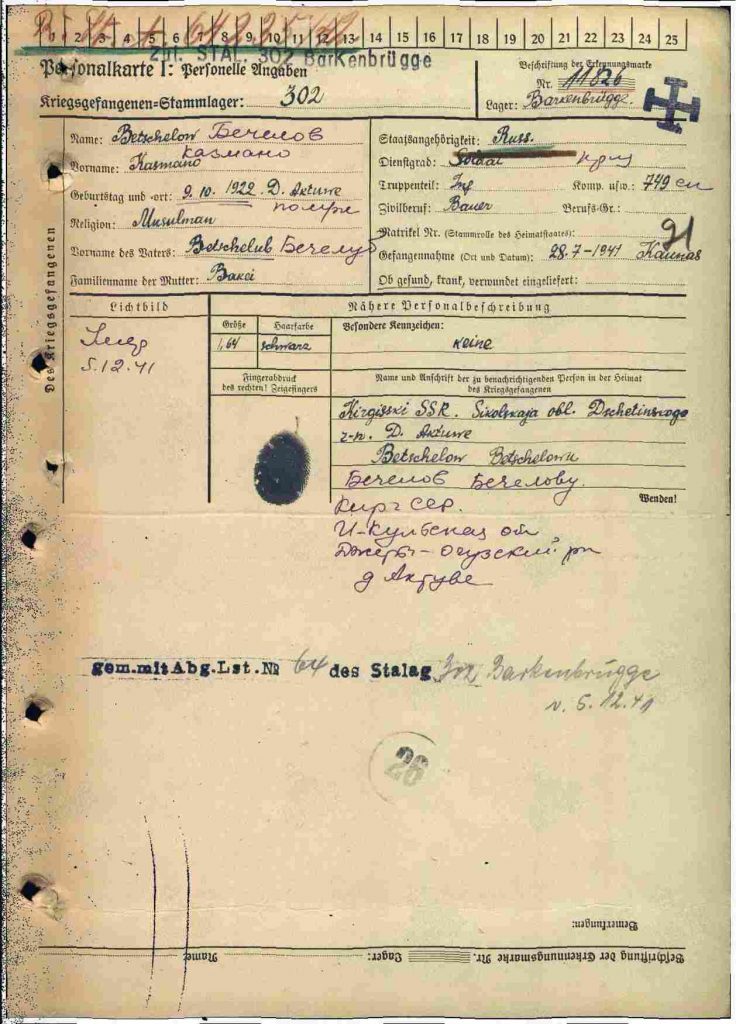 1 2 3 4 5 6 7 8 9 10 11 12 13 14 15 16 17 18 19 20 21 22 23 24 25
STAL. 302 Barkenbrügge
Personalkarte I: Personelle Angaben
Kriegsgefangenen-Stammlager: 302
Beschriftung der Erkennungsmarke
Nr. 11826
Lager: Barkenbrügge.
Des Kriegsgefangenen
Name: Betschelow Бечелов
Казмано
Vorname: Kasmano
Geburtstag und -ort: 9.10. 1922. D. Aktuwe
Religion: Musulman
Vorname des Vaters: Betschelub Бечелуб
Familienname der Mutter: Bakei
Staatsangehörigkeit: Russ.
Dienstgrad: Soldat
Truppenteil: Inf Komp. usw.: 749 сп
Zivilberuf: Bauer Berufs-Gr.:
Matrikel Nr. (Stammrolle des Heimatstaates):
91
Gefangennahme (Ort und Datum): 28.7-1941 Kaunas
Ob gesund, krank, verwundet eingeliefert:
Lichtbild
5.12.41
Nähere Personalbeschreibung
Größe Haarfarbe Besondere Kennzeichen:
1,64 schwarz keine
Fingerabdruck
des rechten! Zeigefingers
Name und Anschrift der zu benachrichtigenden Person in der Heimat
des Kriegsgefangenen
Kirgisski SSR. Sikolskaja obl. Dschetinskogo
r-n. D. Aktuwe
Betschelow Betschelowu
Бечелов Бечелову.
Wenden!
Кирг ССР.
И-Кульская
Джеты-Огузский рн
д Актуве
gem.mit Abg.Lst.№ 64 des Stalag 302 Barkenbrügge
v. 5.12.41
26
Bemerkungen:
Beschriftung der Erkennungsmarke Nr. Lager: Name: